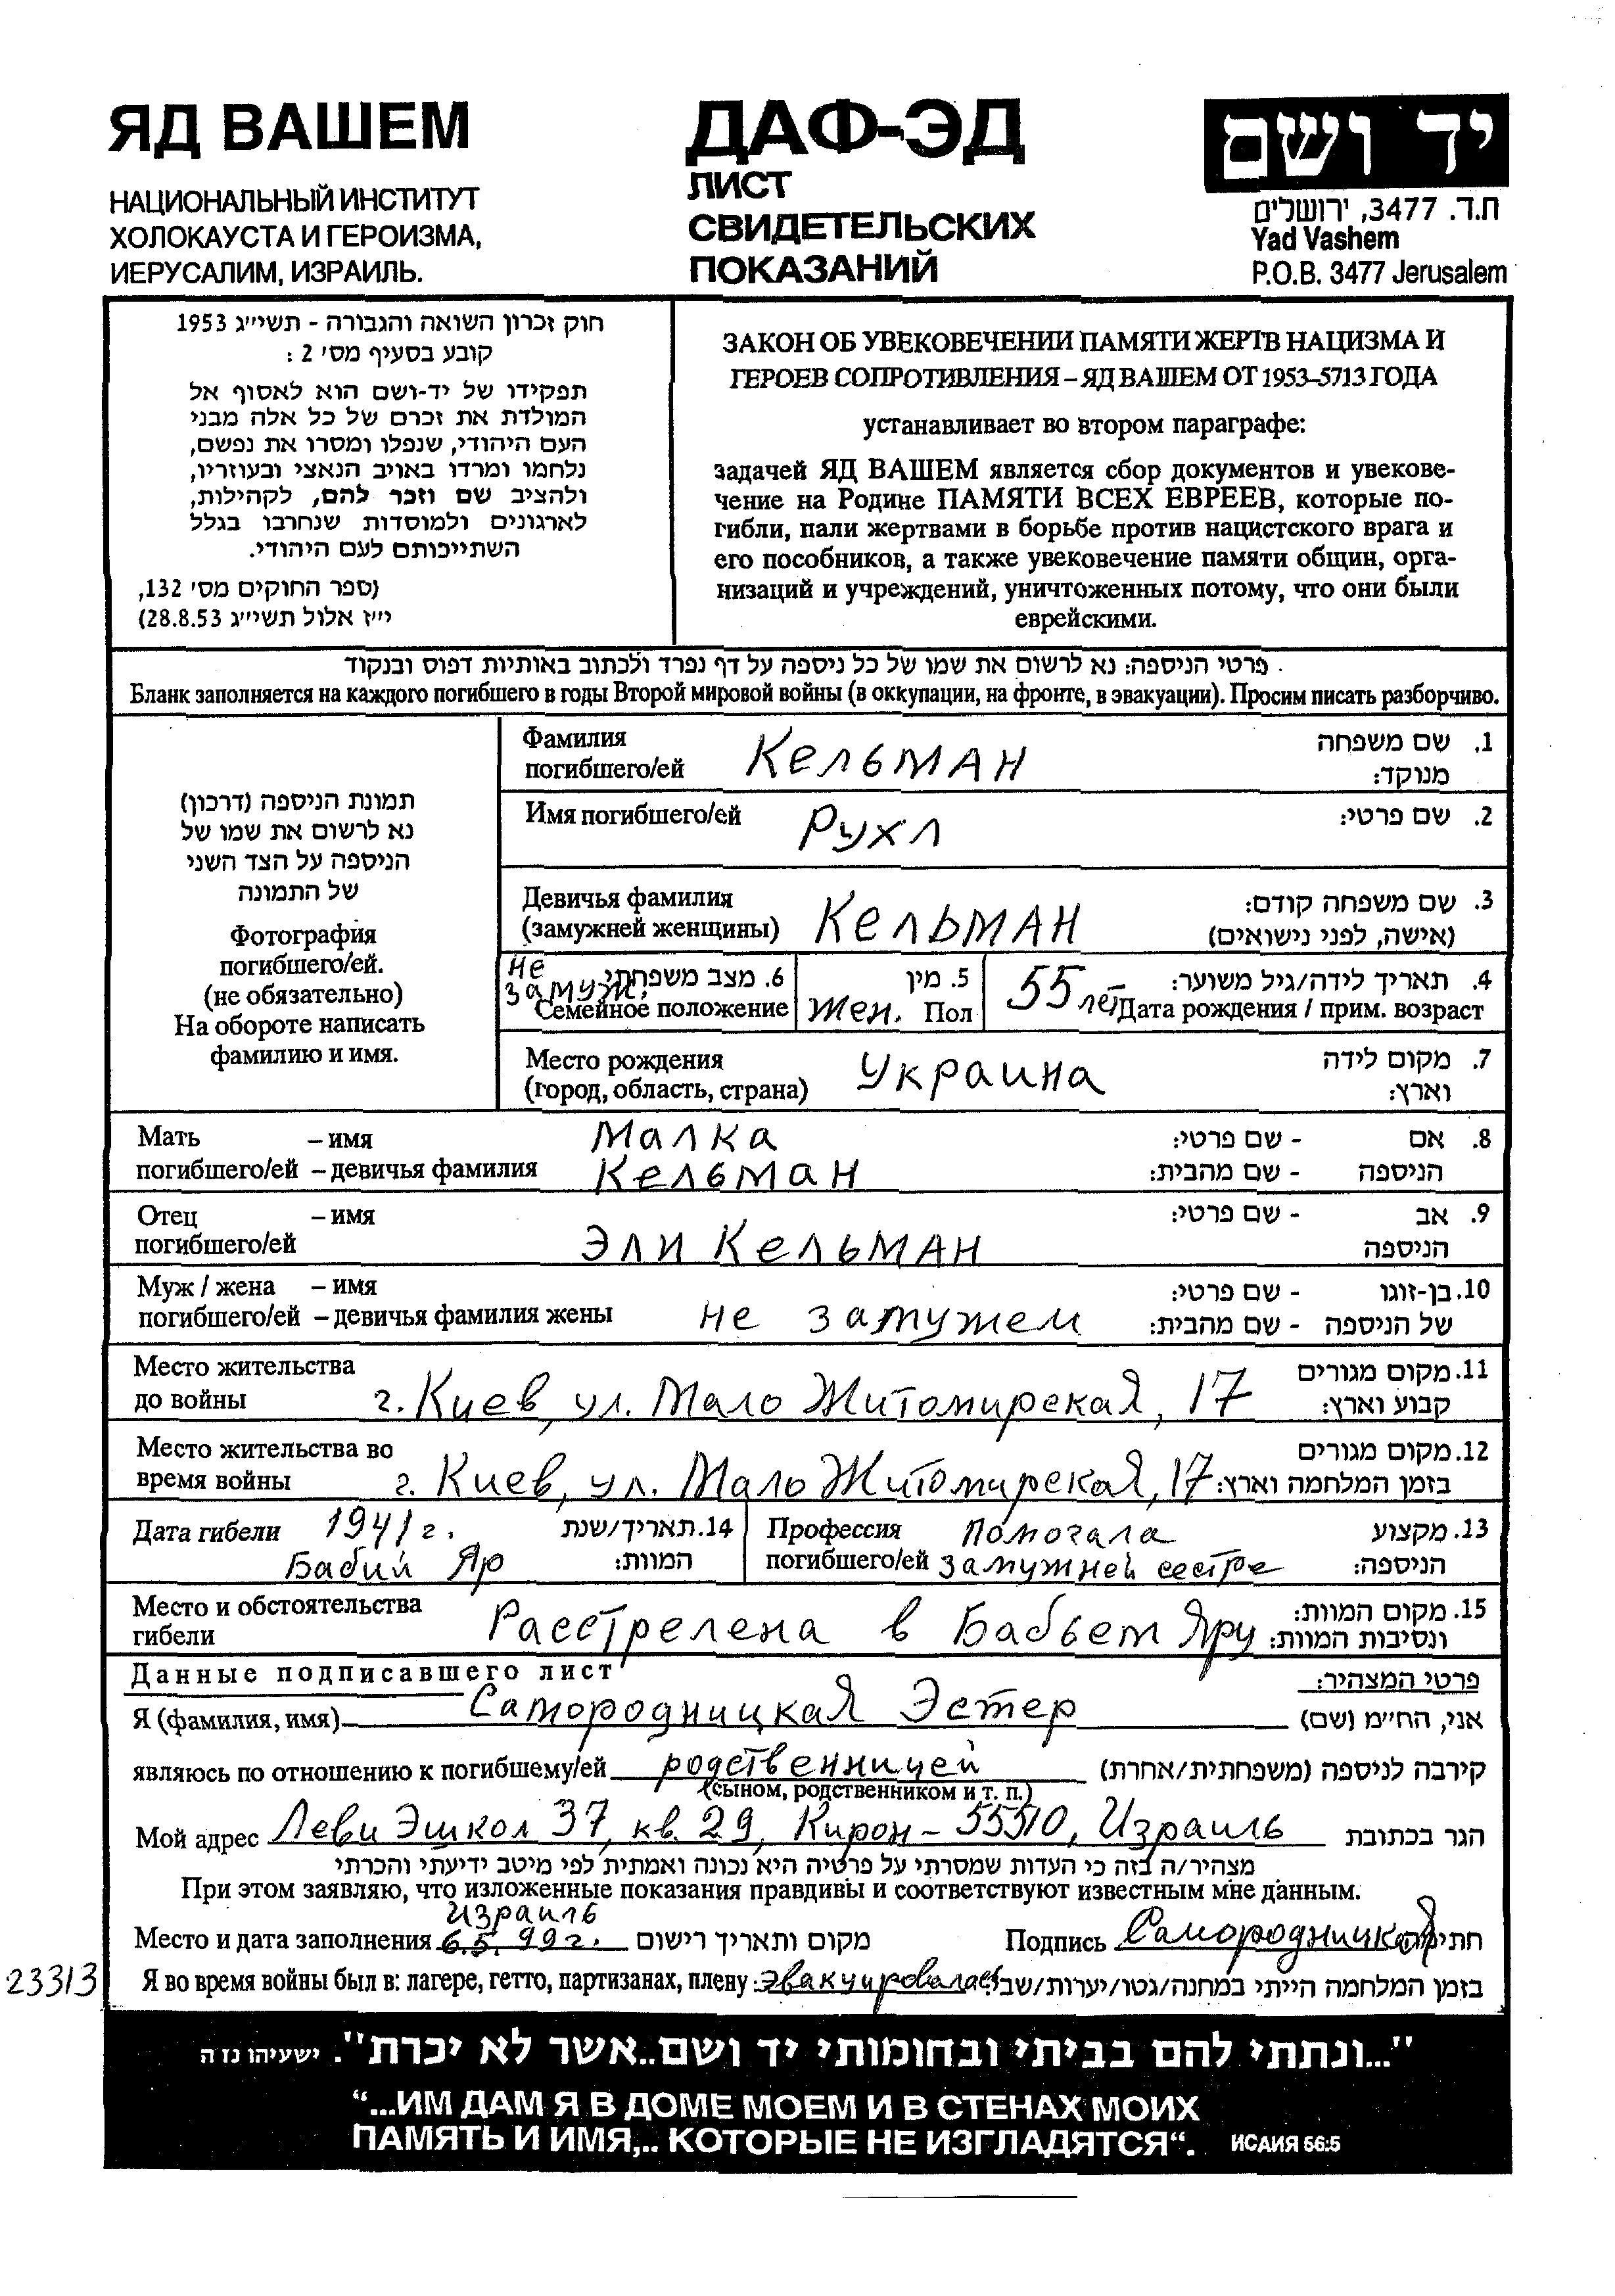 ЯД ВАШЕМ
НАЦИОНАЛЬНЫЙ ИНСТИТУТ
ХОЛОКАУСТА И ГЕРОИЗМА,
ИЕРУСАЛИМ, ИЗРАИЛЬ.
ДАФ-ЭД
ЛИСТ
СВИДЕТЕЛЬСКИХ
ПОКАЗАНИЙ
יד ושם
ת.ד. 3477, ירושלים
Yad Vashem
P.O.B. 3477 Jerusalem
חוק זכרון השואה והגבורה - תשי״ג 1953
קובע בסעיף מס׳ 2 :
תפקידו של יד-ושם הוא לאסוף אל
המולדת את זכרם של כל אלה מבני
העם היהודי, שנפלו ומסרו את נפשם,
נלחמו ומרדו באויב הנאצי ובעוזריו,
ולהציב שם וזכר להם, לקהילות,
לארגונים ולמוסדות שנחרבו בגלל
השתייכותם לעם היהודי.
(ספר החוקים מס׳ 132,
י״ז אלול תשי״ג 28.8.53)
ЗАКОН ОБ УВЕКОВЕЧЕНИИ ПАМЯТИ ЖЕРТВ НАЦИЗМА И
ГЕРОЕВ СОПРОТИВЛЕНИЯ – ЯД ВАШЕМ ОТ 1953-5713 ГОДА
устанавливает во втором параграфе:
задачей ЯД ВАШЕМ является сбор документов и увекове-
чение на Родине ПАМЯТИ ВСЕХ ЕВРЕЕВ, которые по-
гибли, пали жертвами в борьбе против нацистского врага и
его пособников, а также увековечение памяти общин, орга-
низаций и учреждений, уничтоженных потому, что они были
еврейскими.
פרטי הניספה: נא לרשום את שמו של כל ניספה על דף נפרד ולכתוב באותיות דפוס ובנקוד
Бланк заполняется на каждого погибшего в годы Второй мировой войны (в оккупации, на фронте, в эвакуации). Просим писать разборчиво.
תמונת הניספה (דרכון)
נא לרשום את שמו של
הניספה על הצד השני
של התמונה
Фотография
погибшего/ей.
(не обязательно)
На обороте написать
фамилию и имя.
Фамилия Кельман 1. שם משפחה
погибшего/ей מנוקד:
Имя погибшего/ей Рухл 2. שם פרטי:
Девичья фамилия Кельман 3. שם משפחה קודם:
(замужней женщины) (אישה, לפני נישואים)
не замуж. 6. מצב משפחתי 5. מין 55 лет 4. תאריך לידה/גיל משוער:
Семейное положение Жен. Пол Дата рождения / прим. возраст
Место рождения Украина 7. מקום לידה
(город, область, страна) וארץ:
Мать – имя Малка - שם פרטי: 8. אם
погибшего/ей – девичья фамилия Кельман - שם מהבית: הניספה
Отец – имя - שם פרטי: 9. אב
погибшего/ей Эли Кельман הניספה
Муж / жена – имя - שם פרטי: 10. בן-זוגו
погибшего/ей – девичья фамилия жены не замужем - שם מהבית: של הניספה
Место жительства 11. מקום מגורים
до войны г. Киев, ул. Мало Житомирская, 17 קבוע וארץ:
Место жительства во 12. מקום מגורים
время войны г. Киев, ул. Мало Житомирская, 17 בזמן המלחמה וארץ:
Дата гибели 1941 г. 14. תאריך/שנת Профессия Помогала 13. מקצוע
Бабий Яр המוות: погибшего/ей замужней сестре הניספה:
Место и обстоятельства 15. מקום המוות:
гибели Расстрелена в Бабьем Яру ונסיבות המוות:
Данные подписавшего лист פרטי המצהיר:
Я (фамилия, имя) Самородницкая Эстер אני, הח״מ (שם)
являюсь по отношению к погибшему/ей родственницей קירבה לניספה (משפחתית/אחרת)
(сыном, родственником и т. п.)
Мой адрес Леви Эшкол 37, кв. 29, Кирон – 55510, Израиль הגר בכתובת
מצהיר/ה בזה כי העדות שמסרתי על פרטיה היא נכונה ואמתית לפי מיטב ידיעתי והכרתי
При этом заявляю, что изложенные показания правдивы и соответствуют известным мне данным.
Израиль
Место и дата заполнения 6.5.99 г. מקום ותאריך רישום Подпись Самородницкая חתימה
23313 Я во время войны был в: лагере, гетто, партизанах, плену: эвакуировалась בזמן המלחמה הייתי במחנה/גטו/יערות/שבי:
"...ונתתי להם בביתי ובחומותי יד ושם..אשר לא יכרת". ישעיהו נו ה
“...ИМ ДАМ Я В ДОМЕ МОЕМ И В СТЕНАХ МОИХ
ПАМЯТЬ И ИМЯ,.. КОТОРЫЕ НЕ ИЗГЛАДЯТСЯ“. ИСАИЯ 56:5